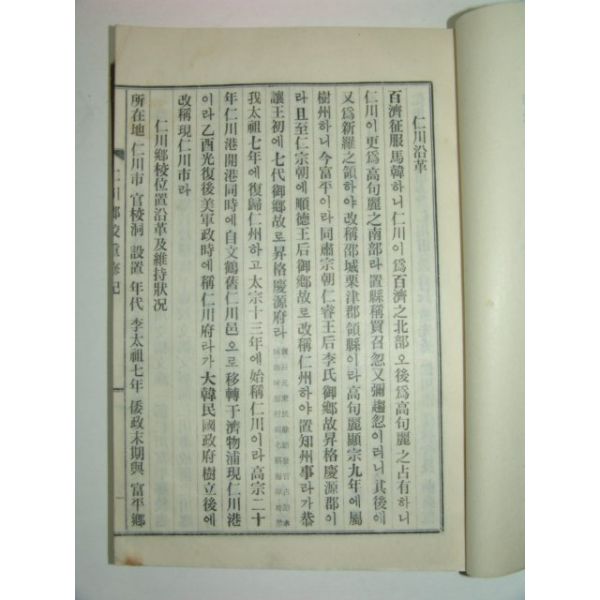 仁川沿革
百濟征服馬韓하니仁川이爲百濟之北部오後爲高句麗之占有하니
仁川이更爲高句麗之南部라置縣稱買召忽又彌趨忽이러니其後에
又爲新羅之領하야改稱邵城栗津郡領縣이라高句麗顯宗九年에屬
樹州하니今富平이라同肅宗朝仁睿王后李氏御鄕故昇格慶源郡이
라且至仁宗朝에順德王后御鄕故로改稱仁州하야置知州事라가恭
讓王初에七代御鄕故로昇格慶源府라
我太祖七年에復歸仁州하고太宗十三年에始稱仁川이라高宗二十
年仁川港開港同時에自文鶴舊仁川邑으로移轉于濟物浦現仁川港
이라乙酉光復後美軍政時에稱仁川府라가大韓民國政府樹立後에
改稱現仁川市라
仁川鄕校位置沿革及維持狀況
所在地 仁川市 官校洞 設置 年代 李太祖七年 倭政末期與 富平鄕
仁川鄕校重修記